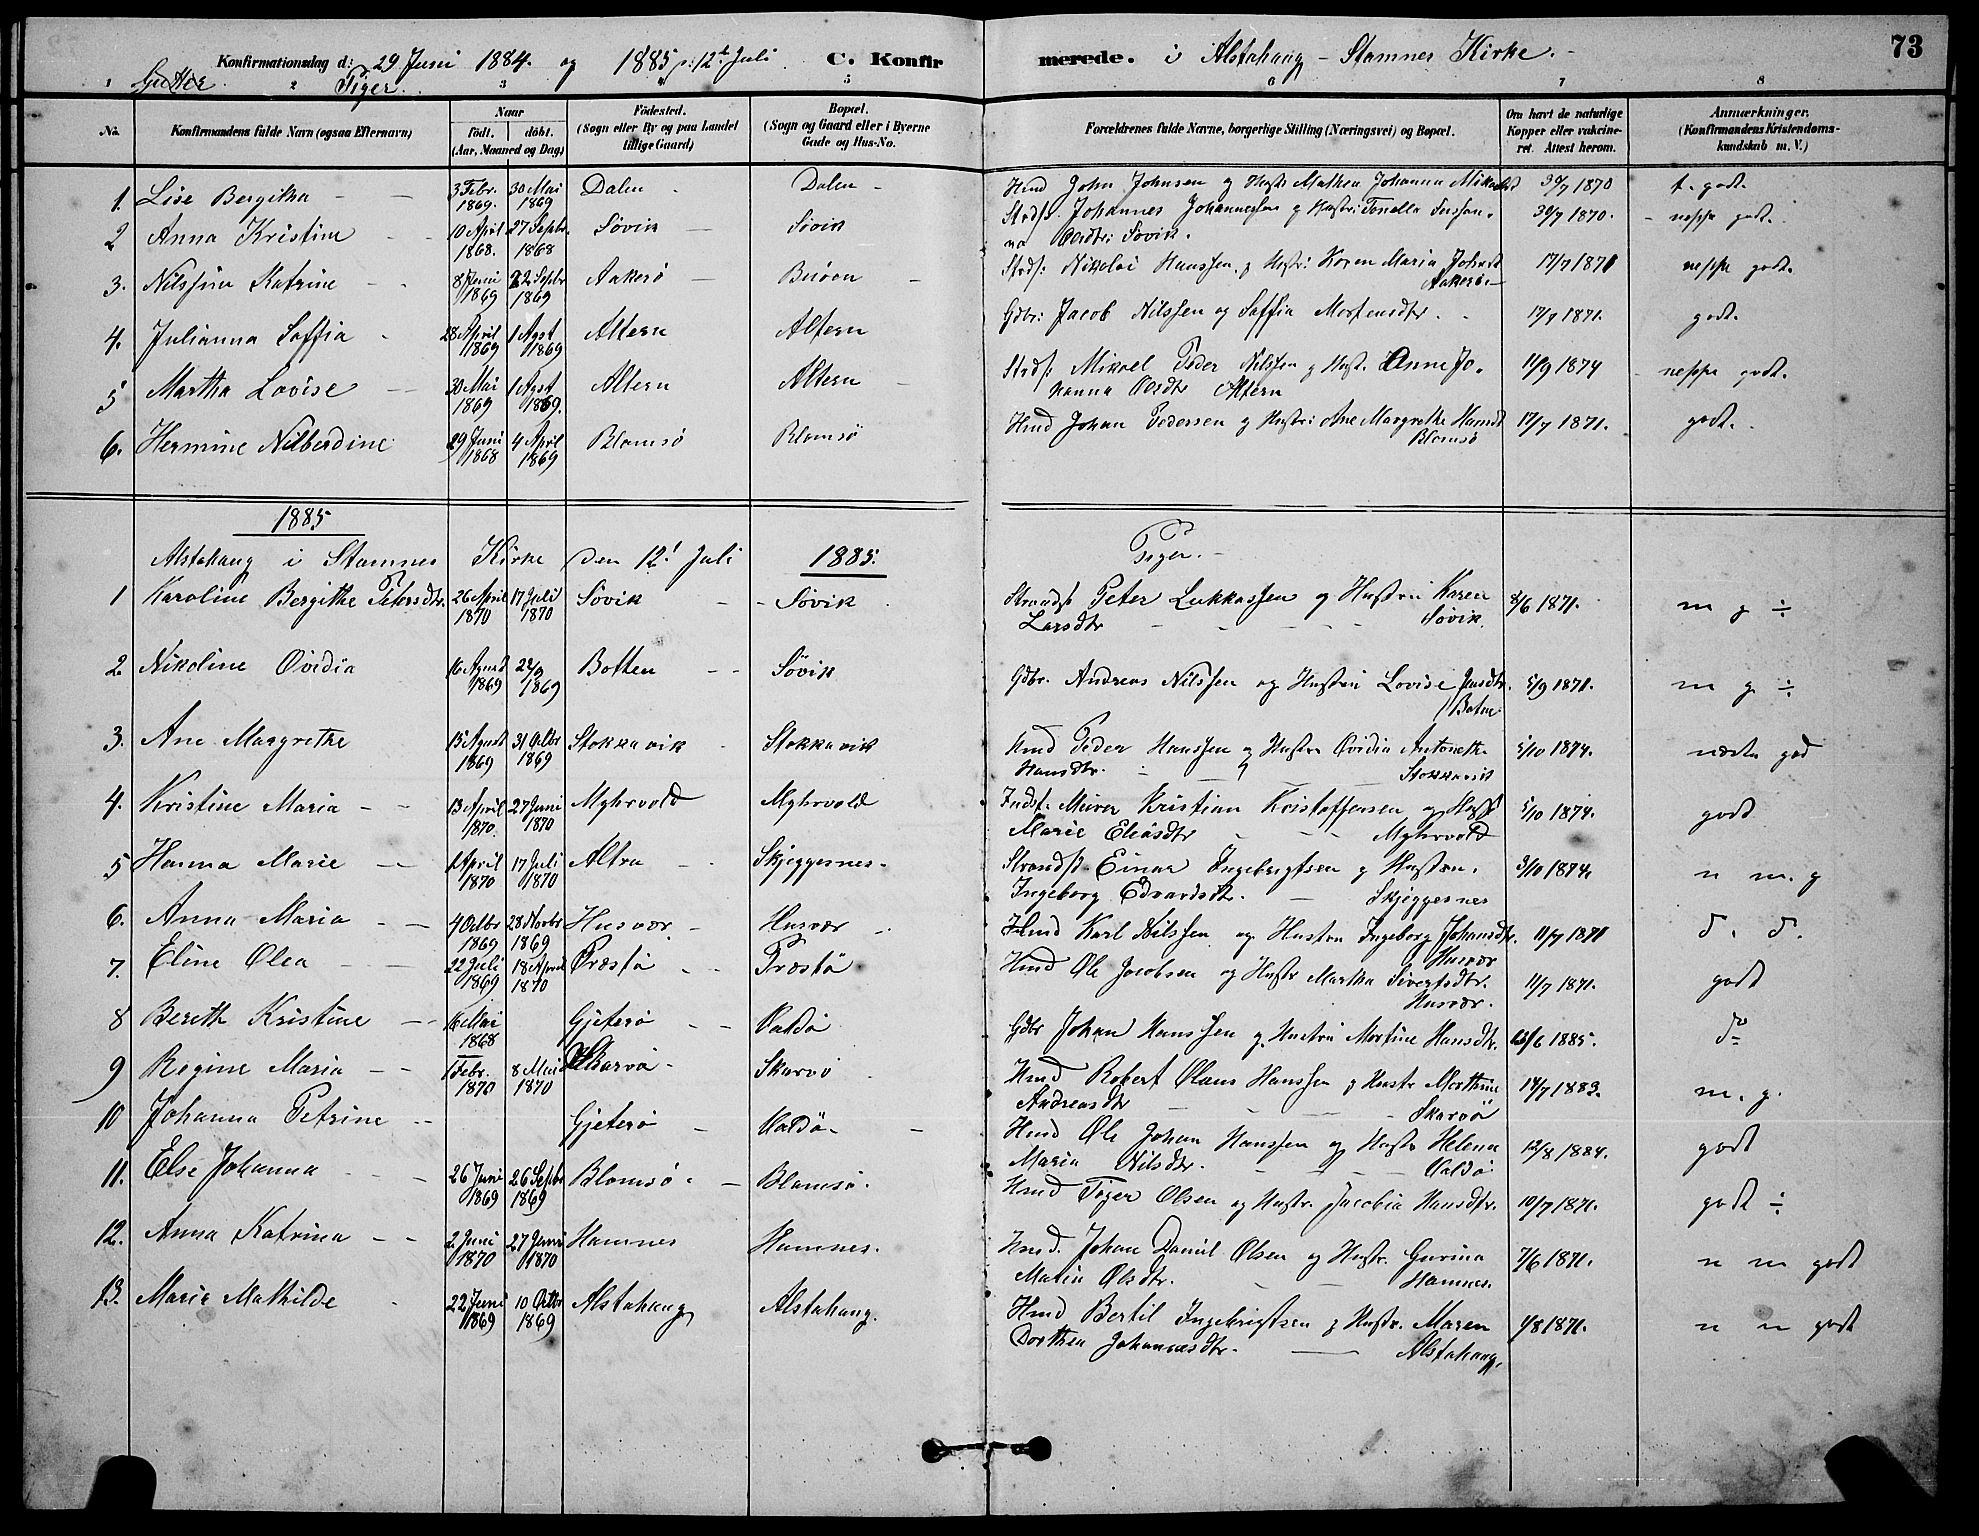 73
Konfirmationsdag d: 29 Juni 1884. og 1885 p: 12te Juli C. Konfirmerede. i Alstahaug - Stamnes Kirke.
Piger.
1 2 3 4 5 6 7 8
No. Konfirmandens fulde Navn (ogsaa Efternavn) Naar födt. döbt. (Aar, Maaned og Dag) Födested. (Sogn eller By og paa Landet tillige Gaard) Bopæl. (Sogn og Gaard eller i Byerne Gade og Hus-No. Forældrenes fulde Navne, borgerlige Stilling (Næringsvei) og Bopæl. Om havt de naturlige Kopper eller vakcineret. Attest herom. Anmærkninger. (Konfirmandens Kristendomskundskab m. V.)
1. Lise Bergitha 3 Febr. 1869. 30 Mai 1869 Dalen Dalen Hmd John Johnsen og Hustr Mathea Johanna 30/7 1870 t. godt.
2 Anna Kristine 10 April 1868. 27 Septbr. 1868 Søvik Søvik Strds. Johannes Johannessen og Hustr: Tonella Susanna Søvik. 30/7 1870. neppe godt.
3. Nilssine Katrine 8 Juni 1869 22 Septbr 1869 Aakerø Strds: Nikolai Hanssen og Hustr: Karen Maria Aakerø 17/7 1871 neppe godt.
4. Julianna Saffia 28 April 1869 1 Agst 1869 Altern Altern Gdbr: Jacob Nilssen og Saffia Mortensdtr. 17/7 1871. godt.
5 Martha Lovise 30 Mai 1869 1 Agst 1869. Altern Altern Strds: Mikael Peder Nilssen og Hustr. Anne Johanna Altern 11/9 1874 neppe godt.
6. Hermine Nilberdine 29 Juni 1868 4 April 1869 Blomsø Blomsø Hmd Johan Pedersen og Hustr: Ane Margrethe Hansdt Blomsø 17/7 1871. godt.
1885
Alstahaug i Stamnes Kirke den 12t Juli 1885. Piger.
1 Karoline Bergithe Petersdtr. 26 April 1870 17 Juli 1870 Søvik Søvik Strands Peter Lukkassen og Hustru Karen Larsdtr Søvik. 8/6 1871. m g ÷
2. Nikoline Ovidia 16 Agust 1869 1869 Botten Søvik Gdbr. Andreas Nilssen og Hustru Lovise Botn 5/9 1871. m g ÷
3. Ane Margrethe 15 Agust 1869 31 Octbr 1869 Stokkavik Stokkavik Hmd Peder Hanssen og Hustru Ovidia Antoneth. Hansdtr. Stokkavik 5/10 1874. næsten god
4. Kristine Maria 13 April 1870. 27 Juni 1870 Myhrvold Myhrvold Indst. Murer Kristian Kristoffersen og Hust Marie Eliasdtr Myhrvold 5/10 1874. godt
5 Hanna Marie April 1870 17 Juli 1870 Altra Skjeggesnes. Strands Einar Ingebrigtsen og Hustru. Ingeborg Edvardsdt. Skjeggesnes 3/10 1874. n m. g
6. Anna Maria 4 Octbr 1869 28 Novbr 1869 Husvær Husvær Hmd Karl Nilssen og Hustru Ingeborg Johansdtr. Husvær 11/7 1871 d. d.
7. Eline Olea 22 Juli 1869 18 April 1870 Præstø Præstø Hmd Ole Jacobsen og Hustr Martha Sivertsdtr. Husvær. 11/7 1871. godt
8 Bereth Kristine 16 Mai 1868 Gjeterø Valdø Gdbr Johan Hanssen og Hustru Martine Hansdtr. /6 1885. do
9 Regine Maria 1 Febr. 1870 8 Mai 1870 Skarvø Skarvø Hmd Robert Olaus Hanssen og Hustr Marthine Andreasdtr Skarvø 14/7 1883. m. g.
10 Johanna Petrine Gjeterø Valdø Hmd Ole Johan Hanssen og Hustr Helena Maria Nilsdtr. Valdø 12/8 1884. godt
11. Else Johanna 26 Juni 1869 26 Septbr 1869 Blomsø Blomsø. Hmd Piger Olsen og Hustr. Jacobia Hansdtr. 10/7 1871. godt ÷
12. Anna Katrina 2 Juni 1870 27 Juni 1870 Hamnes Hamnes. Hmd. Johan Daniel Olsen og Hustr. Gurina Maria Olsdtr. Hamnes. 7/6 1871. n m godt
13. Marie Mathilde 22 Juni 1869 10 Octbr 1869 Alstahaug Alstahaug. Hmd Bertil Ingebrigtsen og Hustr. Maren Dorthea Johannesdtr. Alstahaug. 1/8 1871. n n godt